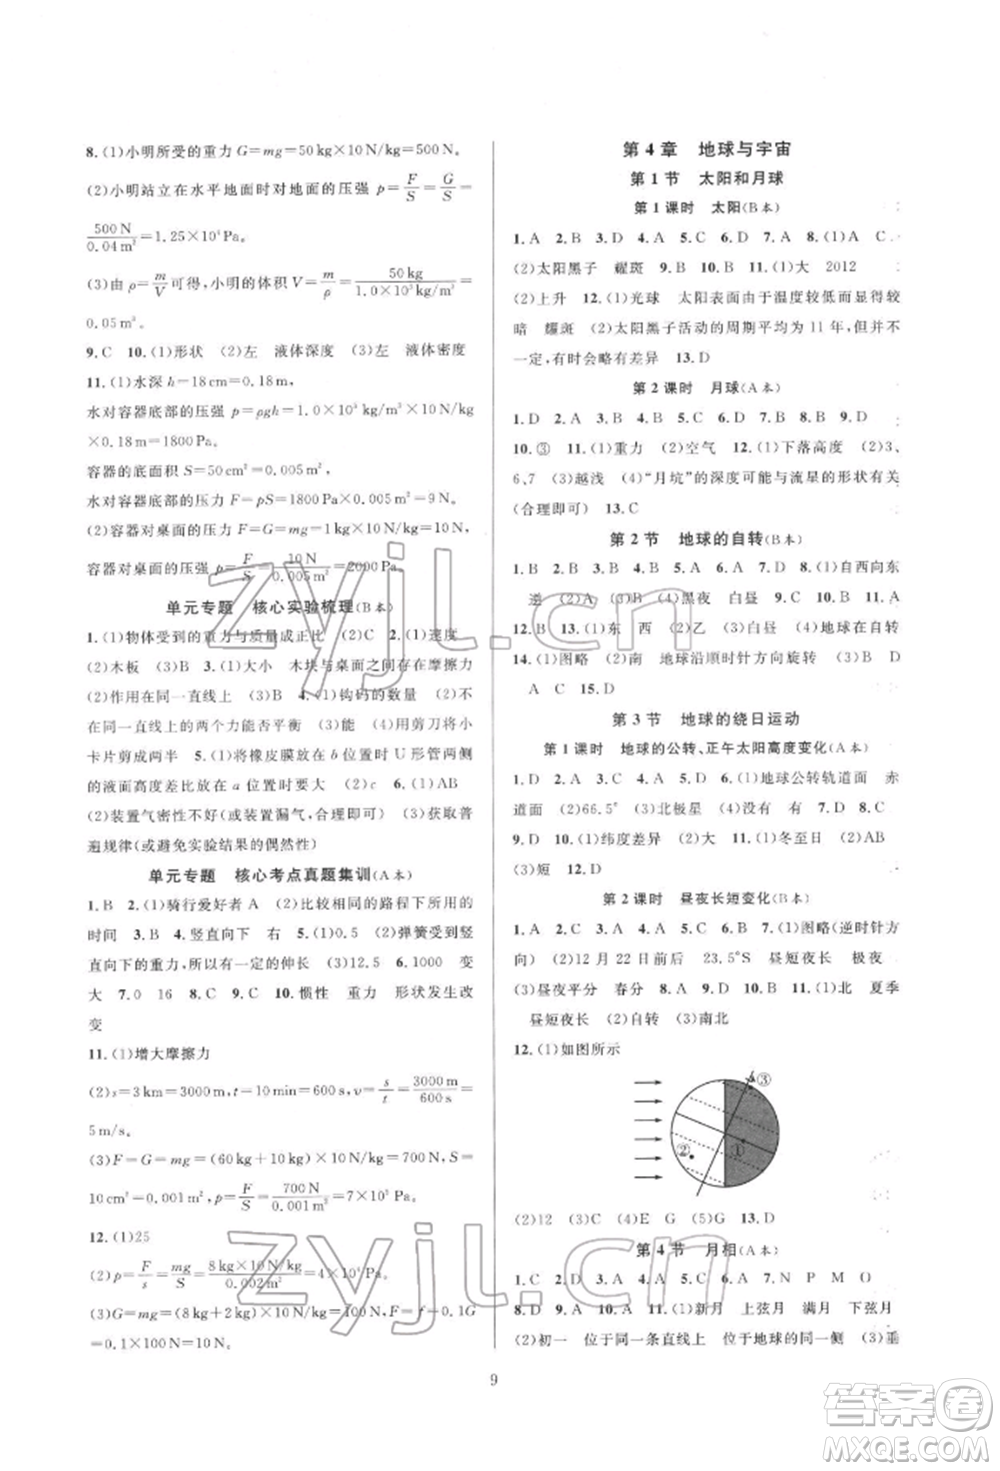 8. (1)小明所受的重力 G=mg=50 kg×10 N/kg=500 N.
(2)小明站立在水平地面时对地面的压强 p=F/S=G/S=
500 N/0.04 m²=1.25×10⁴ Pa.
(3)由 ρ=m/V 可得,小明的体积 V=m/ρ=50 kg/1.0×10³ kg/m³=
0.05 m³.
9. C 10. (1)形状 (2)左 液体深度 (3)左 液体密度
11. (1)水深 h=18 cm=0.18 m,
水对容器底部的压强 p=ρgh=1.0×10³ kg/m³×10 N/kg
×0.18 m=1800 Pa.
容器的底面积 S=50 cm²=0.005 m²,
水对容器底部的压力 F=pS=1800 Pa×0.005 m²=9 N.
(2)容器对桌面的压力 F=G=mg=1 kg×10 N/kg=10 N,
容器对桌面的压强 p=F/S=10 N/0.005 m²=2000 Pa.
单元专题 核心实验梳理(B本)
1. (1)物体受到的重力与质量成正比 2. (1)速度
(2)木板 3. (1)大小 木块与桌面之间的滑动摩擦力
(2)作用在同一直线上 (3)B 4. (1)钩码的数量 (2)不
在同一直线上的两个力能否平衡 (3)能 (4)用剪刀将小
卡片剪成两半 5. (1)将橡皮膜放在 b 位置时 U 形管两侧
的液面高度差比放在 a 位置时大 (2)c 6. (1)AB
(2)装置气密性不好(或装置漏气,合理即可) (3)获取普
遍规律(或避免实验结果的偶然性)
单元专题 核心考点真题集训(A本)
1. B 2. (1)骑行爱好者 A (2)比较相同的路程下所用的
时间 3. B 4. 竖直向下 右 5. (1)0.5 (2)弹簧受到竖
直向下的重力,所以有一定的伸长 (3)12.5 6. 1000 变
大 7. 0 16 8. C 9. C 10. 惯性 重力 形状发生改
变
11. (1)增大摩擦力
(2)s=3 km=3000 m,t=10 min=600 s,v=s/t=3000 m/600 s=
5 m/s.
(3)F=G=mg=(60 kg+10 kg)×10 N/kg=700 N,S=
10 cm²=0.001 m²,p=F/S=700 N/0.001 m²=7×10⁵ Pa.
12. (1)25
(2)p=F/s=mg/S=8 kg×10 N/kg/0.002 m²=4×10⁴ Pa.
(3)G=mg=(8 kg+2 kg)×10 N/kg=100 N,F=f=0.1G
=0.1×100 N=10 N.
第 4 章 地球与宇宙
第 1 节 太阳和月球
第 1 课时 太阳(B本)
1. A 2. B 3. D 4. A 5. C 6. D 7. B 8. (1)A C
(2)太阳黑子 耀斑 9. B 10. B 11. (1)大 2012
(2)上升 12. (1)光球 太阳表面由于温度较低而显得较
暗 耀斑 (2)太阳黑子活动的周期平均为 11 年,但并不
一定,有时会略有差异 13. D
第 2 课时 月球(A本)
1. D 2. D 3. B 4. B 5. C 6. D 7. A 8. B 9. A
10. ③ 11. (1)重力 (2)空气 12. (1)下落高度 (2)3、
6、7 (3)越浅 (4)“月坑”的深度可能与流星的形状有关
(合理即可) 13. C
第 2 节 地球的自转(B本)
1. D 2. B 3. D 4. D 5. B 6. D 7. D 8. (1)自西向东
逆 (2)A 9. C 10. (3)黑夜 白昼 (4)C 11. C
12. B 13. (1)东 西 (2)乙 (3)白昼 (4)地球在自转
14. (1)图略 (2)南 地球沿顺时针方向旋转 (3)B D
A C 15. D
第 3 节 地球的绕日运动
第 1 课时 地球的公转、正午太阳高度变化(A本)
1. D 2. D 3. A 4. B 5. C 6. (1)地球公转轨道面 赤
道面 (2)66.5° (3)北极星 (4)没有 有 7. D 8. C
9. D 10. (1)纬度差异 (2)大 11. (1)冬至日 (2)AB
(3)短 12. D
第 2 课时 昼夜长短变化(B本)
1. A 2. D 3. C 4. B 5. C 6. D 7. (1)图略(逆时针方
向) (2)12 月 22 日 23.5°S 昼短夜长 极夜
(3)昼夜平分 春分 8. A 9. D 10. C 11. (1)北 夏季
昼短夜长 (2)自转 (3)南北
12. (1)如图所示
③
①
②
(2)12 (3)C (4)E G (5)G 13. D
第 4 节 月相(A本)
1. C 2. D 3. D 4. A 5. A 6. A 7. N P M O
8. D 9. A 10. A 11. (1)新月 上弦月 满月 下弦月
(2)初一 位于同一条直线上 位于地球的同一侧 (3)垂
9
zyjl.cn
zyjl.cn
答案卷
MXQE.COM